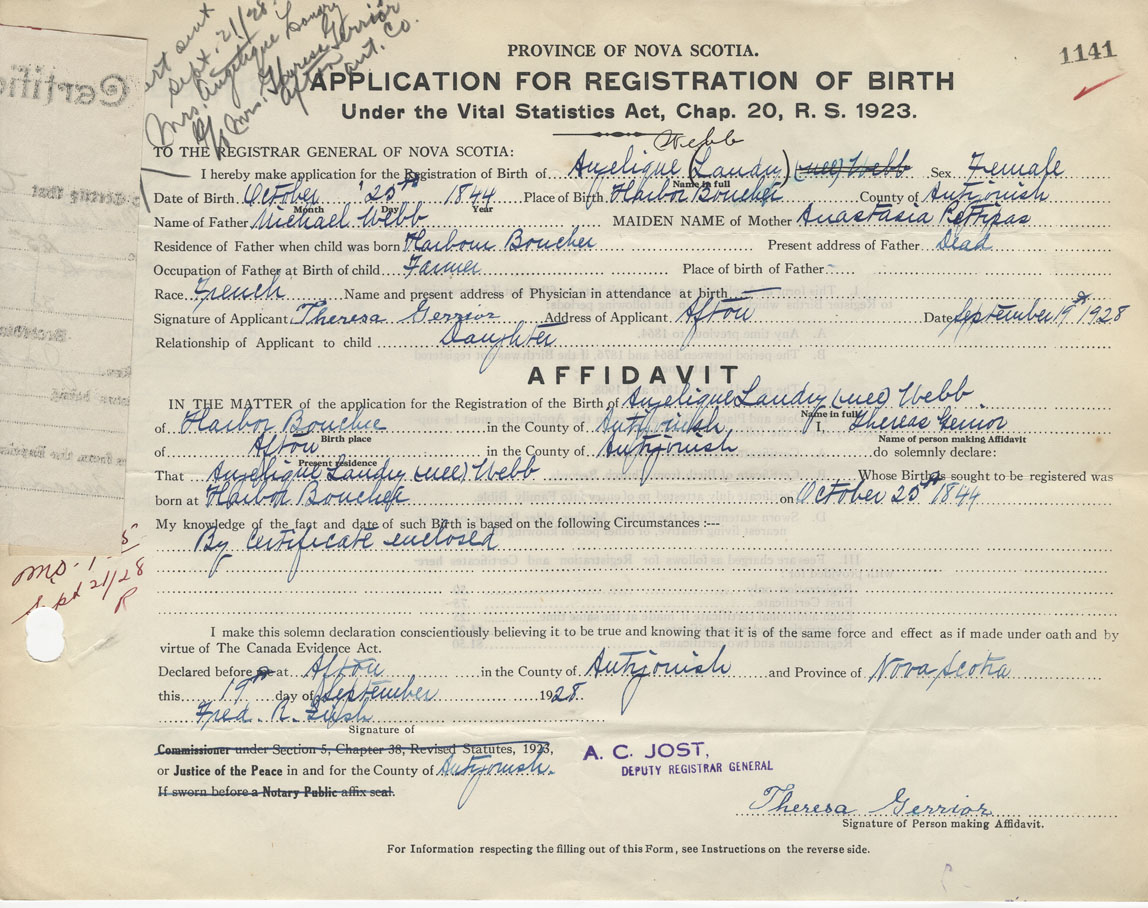 Cert sent
Sept. 21/28.
Mrs. Angelique Landry
c/o Mrs. Therese Gerrior
Afton
Ant. Co.
1141
PROVINCE OF NOVA SCOTIA.
APPLICATION FOR REGISTRATION OF BIRTH
Under the Vital Statistics Act, Chap. 20, R. S. 1923.
Webb
TO THE REGISTRAR GENERAL OF NOVA SCOTIA:
I hereby make application for the Registration of Birth of Anjelique (Landry) (nee) Webb Sex Female
Name in full
Date of Birth October 25th 1844 Place of Birth Harbor Bouchef County of Antijonish
Month Day Year
Name of Father Michael Webb MAIDEN NAME of Mother Anastasia Pettipas
Residence of Father when child was born Harbour Boucher Present address of Father Dead
Occupation of Father at Birth of child Farmer Place of birth of Father -
Race French Name and present address of Physician in attendance at birth —
Signature of Applicant Theresa Gerrior Address of Applicant Afton Date September 19th 1928
Relationship of Applicant to child Daughter
AFFIDAVIT
IN THE MATTER of the application for the Registration of the Birth of Anjelique Landry (nee) Webb
Name in full
of Harbor Bouchie in the County of Antijonish, I, Theresa Gerrior
Birth place Name of person making Affidavit
of Afton in the County of Antijonish do solemnly declare:
Present residence
That Anjelique Landry (nee) Webb Whose Birth is sought to be registered was
born at Harbor Bouchef on October 25th 1844
My knowledge of the fact and date of such Birth is based on the following Circumstances :---
By Certificate enclosed
Sept 21/28
R
I make this solemn declaration conscientiously believing it to be true and knowing that it is of the same force and effect as if made under oath and by
virtue of The Canada Evidence Act.
Declared before at Afton in the County of Antijonish and Province of Nova Scotia
this 19th day of September 1928
Fred. R.
Signature of
Commissioner under Section 5, Chapter 38, Revised Statutes, 1923,
or Justice of the Peace in and for the County of Antijonish.
If sworn before a Notary Public affix seal.
A. C. JOST,
DEPUTY REGISTRAR GENERAL
Theresa Gerrior
Signature of Person making Affidavit.
For Information respecting the filling out of this Form, see Instructions on the reverse side.